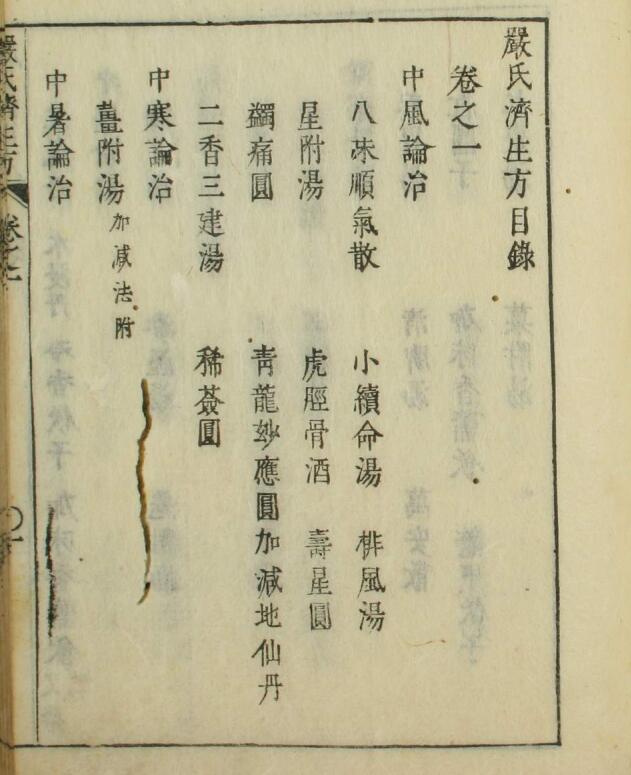 嚴氏濟生方目錄
卷之一
中風論治
八味順氣散 小續命湯 排風湯
星附湯 虎脛骨酒 壽星圓
蠲痛圓 青龍妙應圓 加減地仙丹
二香三建湯 稀薟圓
中寒論治
薑附湯 加减法附
中暑論治
嚴氏濟生方 卷之一